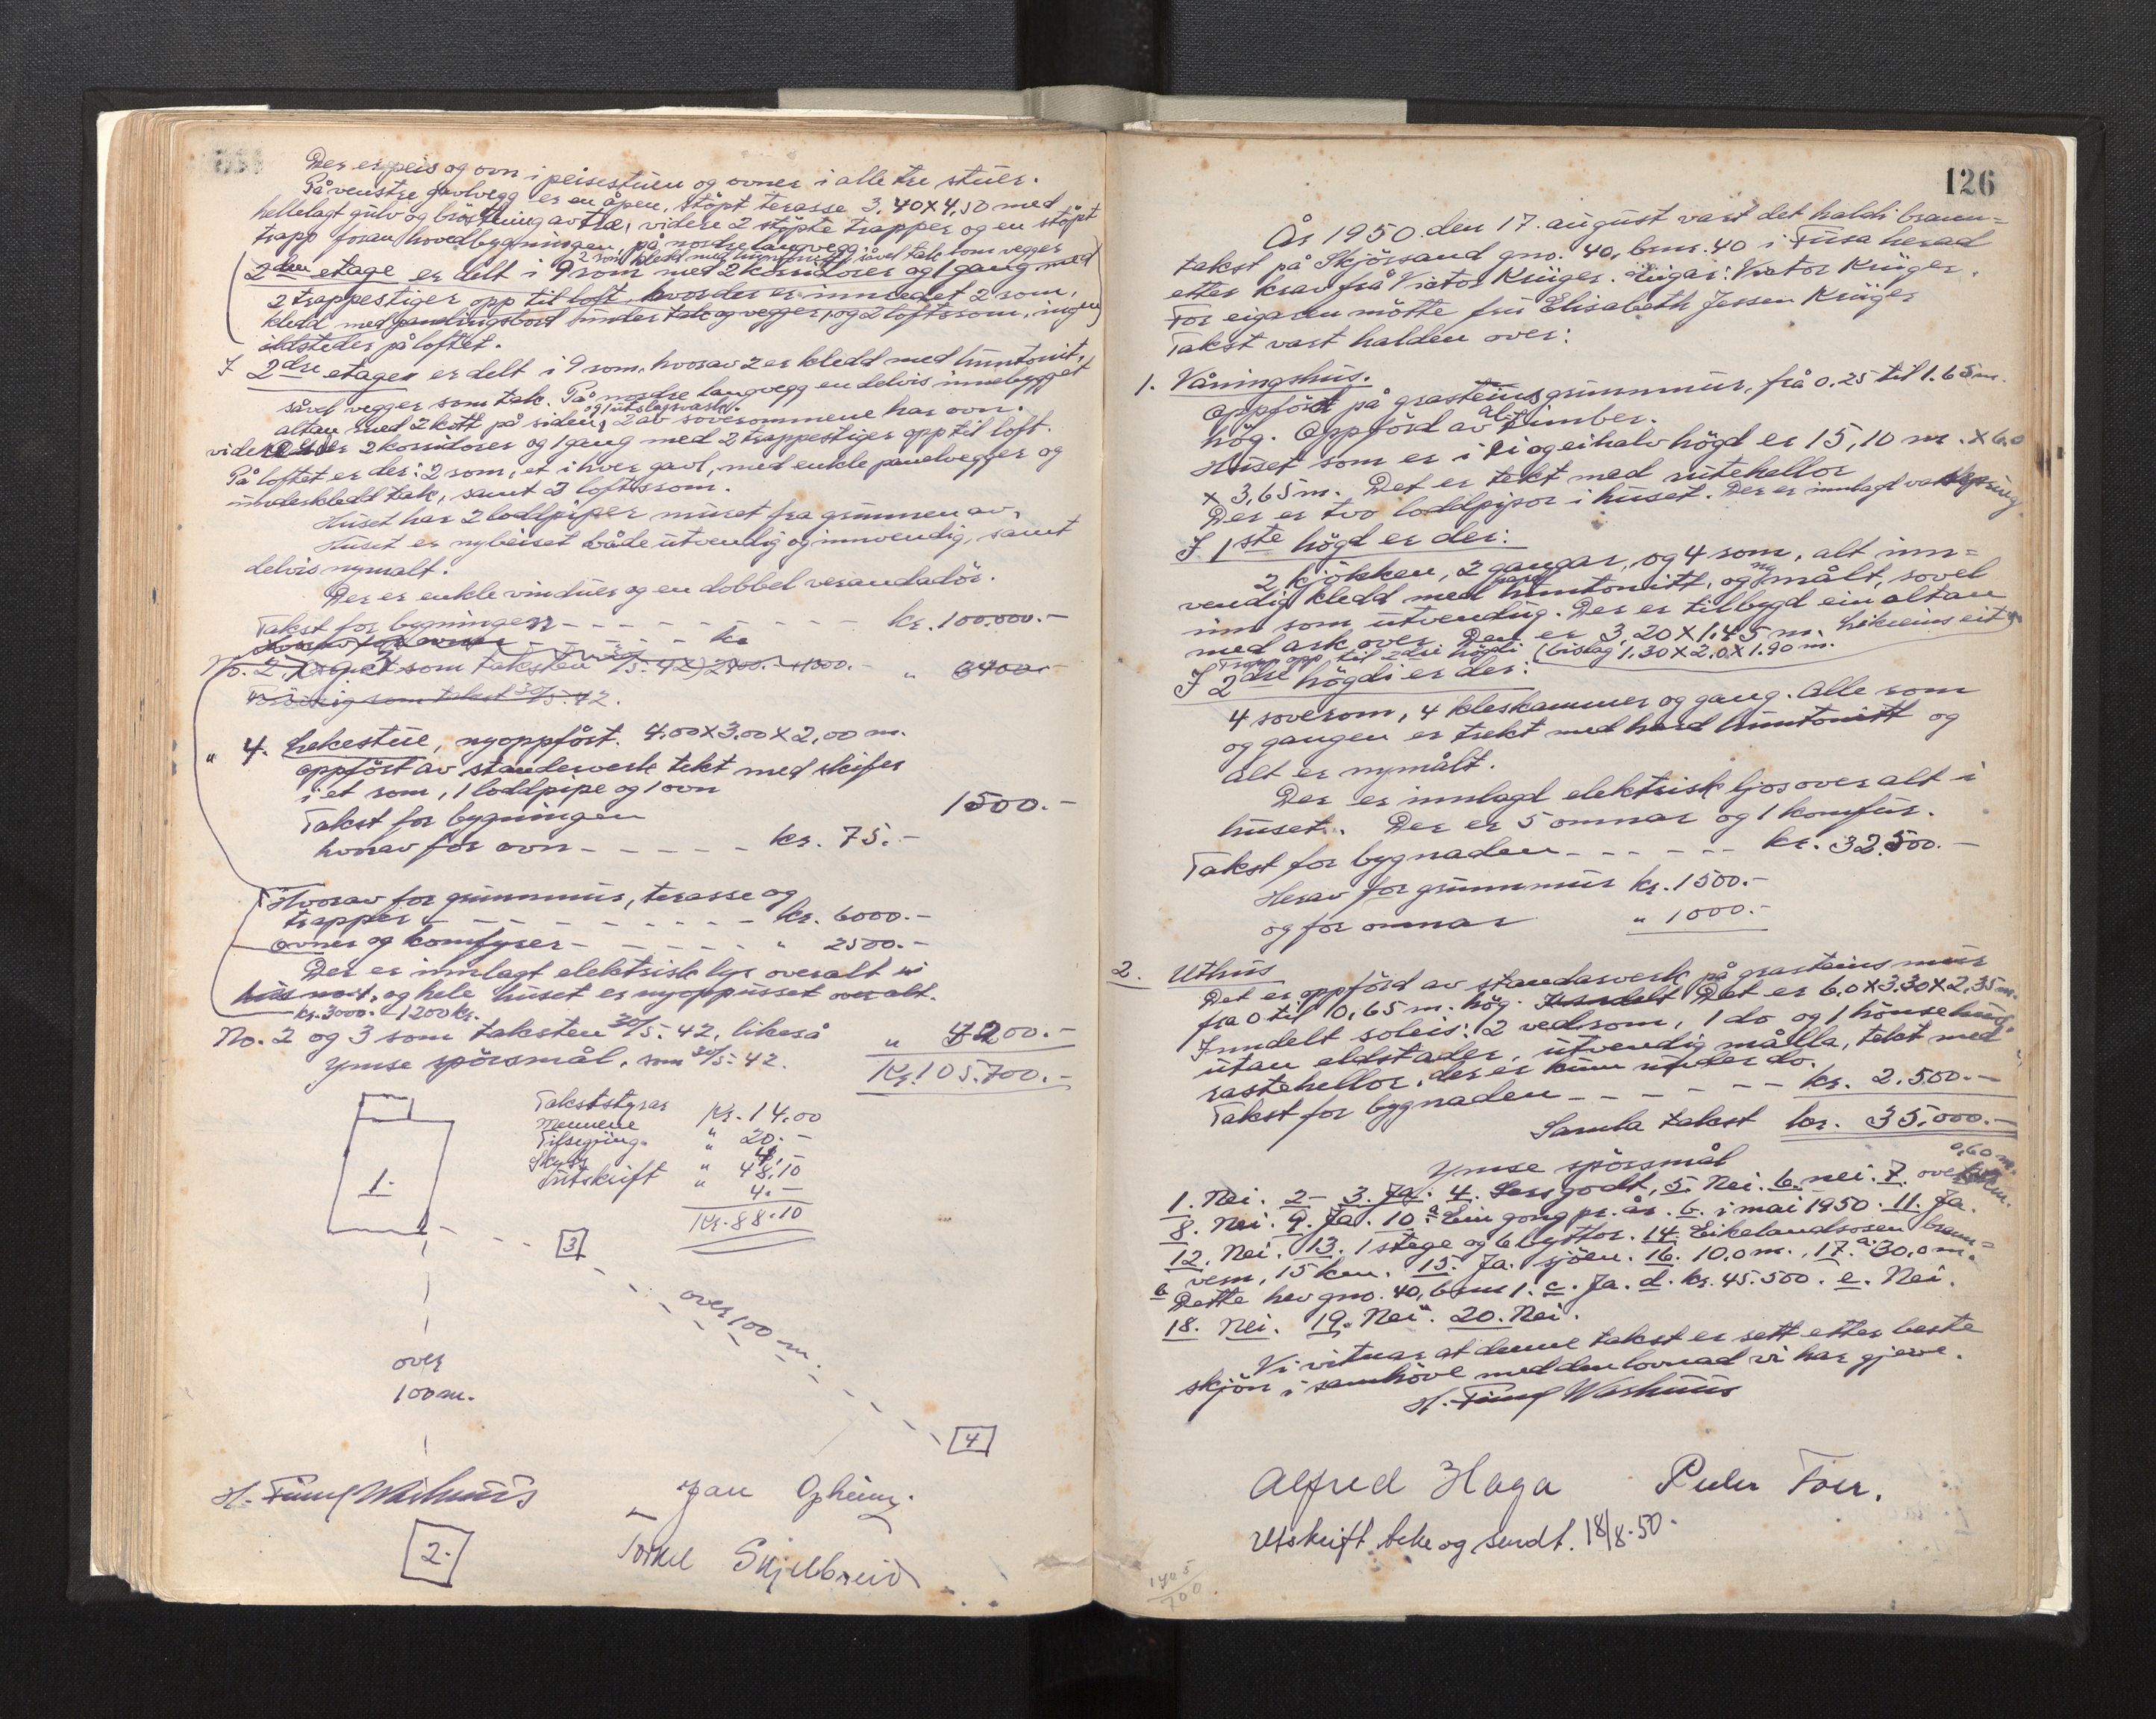 Der er peis og ovn i peisestuen og ovner i alle tre stuer.
På venstre gavlvegg er en åpen, støpt terasse 3,40 x 4,50 med
hellelagt gulv og brøstning av tre, videre 2 støpte trapper og en støpt
trapp foran hovedbygningen, på nordre langvegg.
2 rom kledd med huntonit såvel tak som vegger
2den etage er delt i 9 rom med 2 korridorer og 1 gang med
2 trappestiger opp til loft, hvor der er innredet 2 rom,
kledd med panelingsbord under tak og vegger, og 2 loftsrom, ingen
ildsteder på loftet.
I 2dre etage er delt i 9 rom, hvorav 2 er kledd med huntonit,
såvel vegger som tak. På nordre langvegg en delvis innebygget
og 1 utslagsvask.
altan med 2 kott på siden, 2 av soverommene har ovn.
videre er der 2 korridorer og 1 gang med 2 trappestiger opp til loft.
På loftet er der: 2 rom, et i hver gavl, med enkle panelvegger og
underkledd tak, samt 3 loftsrom.
Huset har 2 loddpiper muret fra grunnen av.
Huset er nybeiset både utvendig og innvendig, samt
delvis nymalt.
Der er enkle vinduer og en dobbel verandadör.
Takst for bygningen - - - kr. 100.000.-
No. 2, og 3 som taksten 30/5-42) 2400.- + 1800.- " 6400.-
som takst 30/5-42.
" 4. Lekestue, nyoppført. 4.00 x 3.00 x 2,00 m.
oppført av standerverk tekt med skifer
i et rom, 1 loddpipe og 1 ovn
Takst for bygningen 1500.-
hvorav for ovn - - - - - kr. 75.-
Hvorav for grunnmur, terasse og
trapper - - - - - - - kr. 6000.-
ovner og komfyrer - - - - - " 2500.-
Der er innlagt elektrisk lys overalt i
huset, og hele huset er nyoppusset over alt.
kr. 3000.- 1200 kr.
No. 2 og 3 som taksten 30/5-42, likeså " 4200.-
Ymse spörsmål, som 30/5-42. Kr. 105.700.-
Takststyrar Kr. 14.00
Mennene " 20.-
Tilsegjing " 4.-
Skyss " 48,10
Utskrift " 4.-
Kr. 88.10
1.
3
over 100 m.
over
100 m.
4
H. Fuud Warhuus
Jan Opheim.
2.
Torkel Skjelbreid
126
År 1950 den 17. august vart det haldi brann=
takst på Skjørsand gno. 40, bnr. 40 i Fusa herad
etter krav frå Viktor Krüger. Eigar: Viktor Krüger.
For eigaren mötte fru Elisabeth Jessen Krüger
Takst vart halden over:
1. Våningshus.
Oppförd på grasteinsgrunnmur, frå 0.25 til 1.65 m.
hög. Oppförd av timber.
Huset som er i ei og ei halv högd er 15,10 m. x 6,0
x 3,65 m. Det er tekt med rutehellor
Der er tvo loddpipor i huset. Der er innlagd
I 1ste högd er der:
2 kjökken, 2 gangar, og 4 rom, alt inn=
vendig kledd med huntonitt, og nymålt, sovel
inn som utvendig. Der er tilbygd ein altan
med ark over. Den er 3,20 x 1,45 m. Likeeins eit
Trapp opp til 2dre högdi (bislag 1.30 x 2,0 x 1.90 m.
I 2dre högdi er der:
4 soverom, 4 kleskammer og gang. Alle rom
og gangen er trekt med hard huntonitt og
alt er nymålt.
Der er innlagd elektrisk ljos over alt i
huset. Der er 5 omnar og 1 komfur.
Takst for bygnaden - - - - - - kr. 32.500.-
Herav for grunnmur kr. 1500.-
og for omnar " 1000.-
2. Uthus
Det er oppförd av standarverk på grasteinsmur
fra 0 til 0,65 m. hög. Det er 6,0 x 3.30 x 2,35 m.
Inndelt soleis: 2 vedrom, 1 do og 1 hönsehus,
utan eldstader, utvendig målla, tekt med
rastehellor, der er kum under do.
Takst for bygnaden - - - - - kr. 2.500.-
Samla takst kr. 35.000.-
Ymse spörsmål
0,60 m.
1. Nei. 2 - 3. Ja. 4. Sers godt, 5. Nei. 6. nei. 7. over
8. Nei. 9. Ja. 10 a Ein gong pr. år. b. i mai 1950. 11. Ja.
12. Nei. 13. 1 stege og 6 byttor. 14. Eikelandsosen brann=
vern, 15 km. 15. Ja. sjöen. 16. 10,0 m. 17. a. 30,0 m.
b Dette hev gno. 40, bnr 1. c. Ja. d. kr. 45.500. e. Nei.
18. Nei. 19. Nei. 20. Nei.
Vi vitnar at denne takst er sett etter beste
skjön i samhöve med den lovnad vi har gjeve.
H. Fuud Warhuus
Alfred Haga Peder Tøer.
Utskrift teke og sendt. 18/8-50.
1405
700